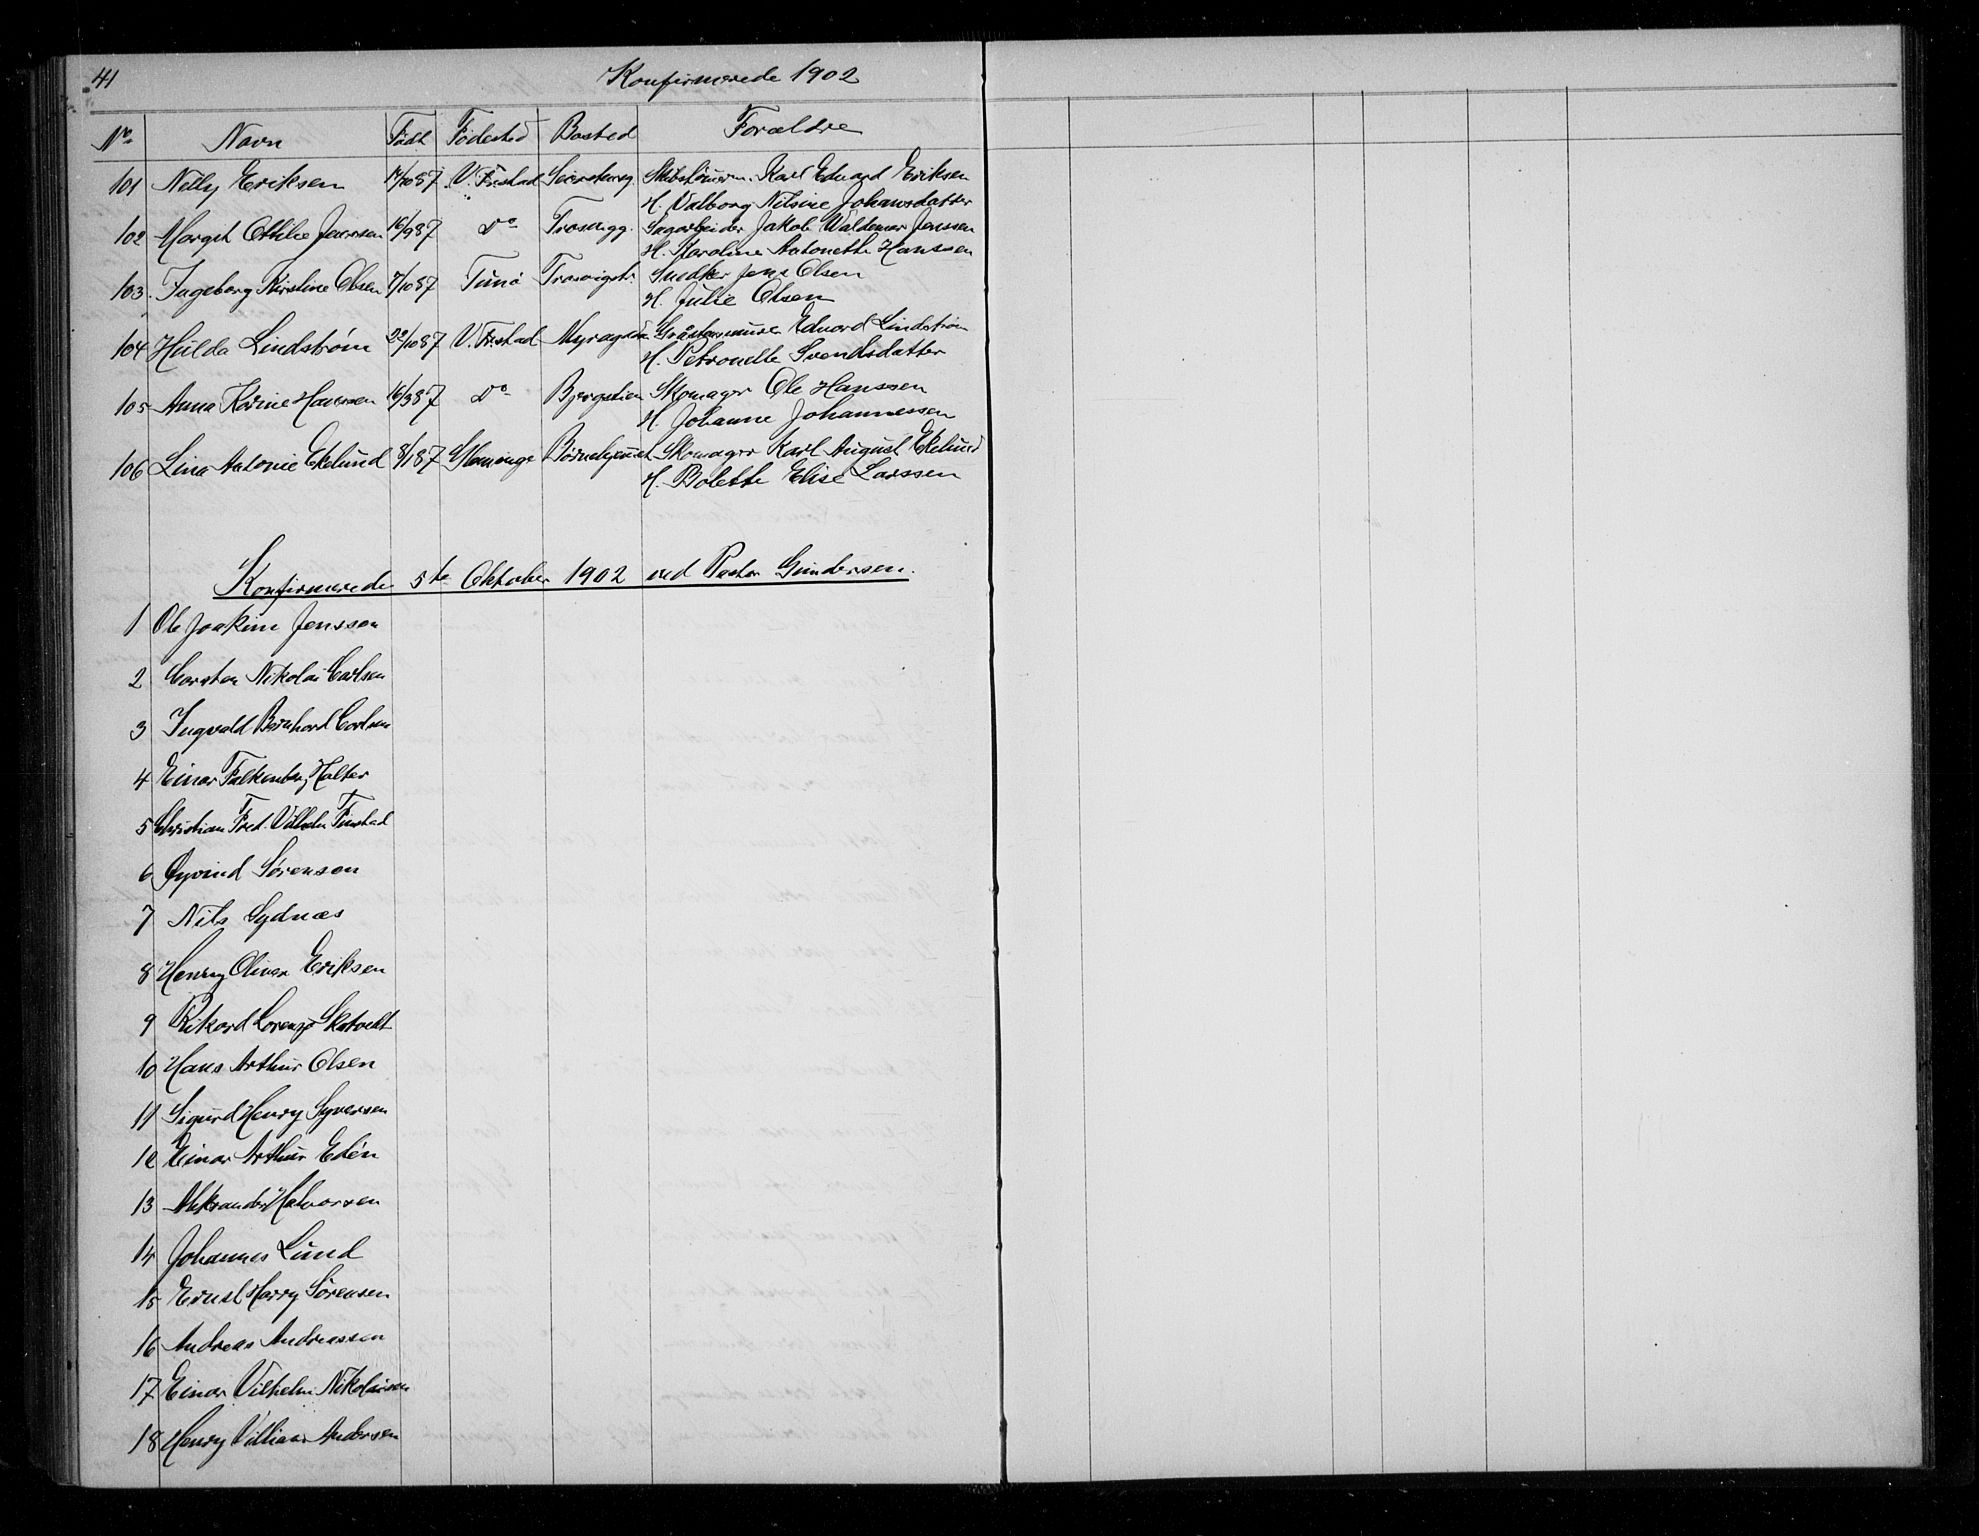 41
Konfirmerede 1902
No Navn Født Fødested Bosted Forældre
101 Nelly Eriksen 14/10 87 V. Fr.stad Skibstømrm. Karl Eduard Eriksen
H. Valborg Nilsine Johansdatter
102 Margit Othilie Jenssen 16/9 87 do Trosvigg. Sagarbeider Jakob Waldemar Jenssen
H. Karoline Antonette Hanssen
103 Ingeborg Kirstine Olsen 7/10 87 Tunø Trosvigst. Snedker Jens Olsen
H. Julie Olsen
104 Hulda Lindstrøm 22/10 87 V. Fr.stad Myragaden Gråstensmurer Edvard Lindstrøm
H. Petronelle Svendsdatter
105 Anna Karine Hanssen 16/3 87 do Bjergstien Skomager Ole Hanssen
H. Johanne Johannessen
106 Lina Antonie Ekelund 8/1 87 Glemminge Børnehjemmet Skomager Karl August Ekelund
H. Bolette Elise Larssen
Konfirmerede 5te Oktober 1902 ved Pastor Gundersen.
1 Ole Joakim Jenssen
2 Carsten Nikolai Carlsen
3 Ingvald Bernhard Carlsen
4 Einar Falkenberg Holter
5 Christian Fred. Vilhelm Finstad
6 Øyvind Sørensen
7 Nils Sydnæs
8 Henry Oliver Eriksen
9 Rikard Lorenzo Skatvedt
10 Hans Arthur Olsen
11 Sigurd Henry Syversen
12 Einar Arthur Edén
13 Aleksander Halvorsen
14 Johannes Lund
15 Ernst Harry Sørensen
16 Andreas Andreassen
17 Einar Vilhelm Nikolaisen
18 Henry Villiam Andersen